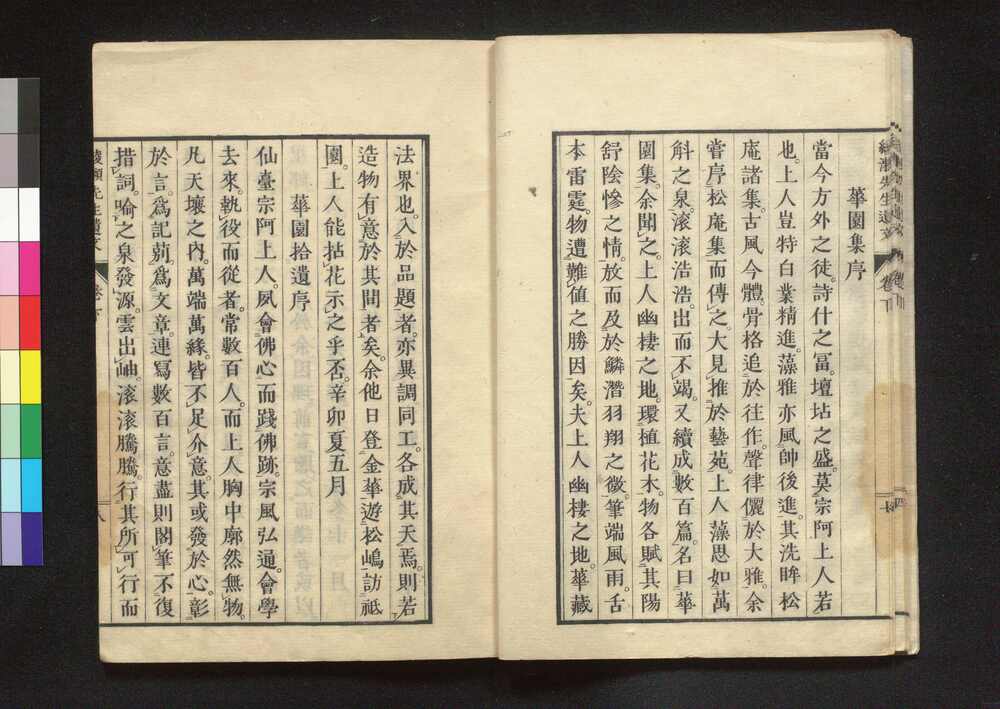 華園集序
當今方外之徒。詩什之冨。壇坫之盛。莫宗阿上人若
也。上人豈特白業精進。藻雅亦風帥後進。其洗眸松
庵諸集。古風今體。骨格追於往作。聲律儷於大雅。余
嘗序松庵集而傳之。大見推於藝苑。上人藻思如萬
斛之泉。滾滾浩浩。出而不竭。又續成數百篇。名曰華
園集。余聞之。上人幽棲之地。環植花木。物各賦其陽
舒陰慘之情。放而及於鱗潛羽翔之微。筆端風雨。舌
本雷霆。物遭難値之勝因矣。夫上人幽棲之地。華藏
法界也。入於品題者。亦異調同工。各成其天焉。則若
造物有意於其間者矣。余他日登金華。遊松嶋。訪祗
園。上人能拈花示之乎否。辛卯夏五月
華園拾遺序
仙臺宗阿上人。夙會佛心而踐佛跡。宗風弘通。會學
去來。執役而從者。常數百人。而上人胸中廓然無物。
凡天壤之内。萬端萬緣。皆不足介意。其或發於心。彰
於言。爲記莂。爲文章。連寫數百言。意盡則閣筆不復
措詞。喻之泉發源。雲出岫。滚滚騰騰。行其所可行而
先生遺文 卷下